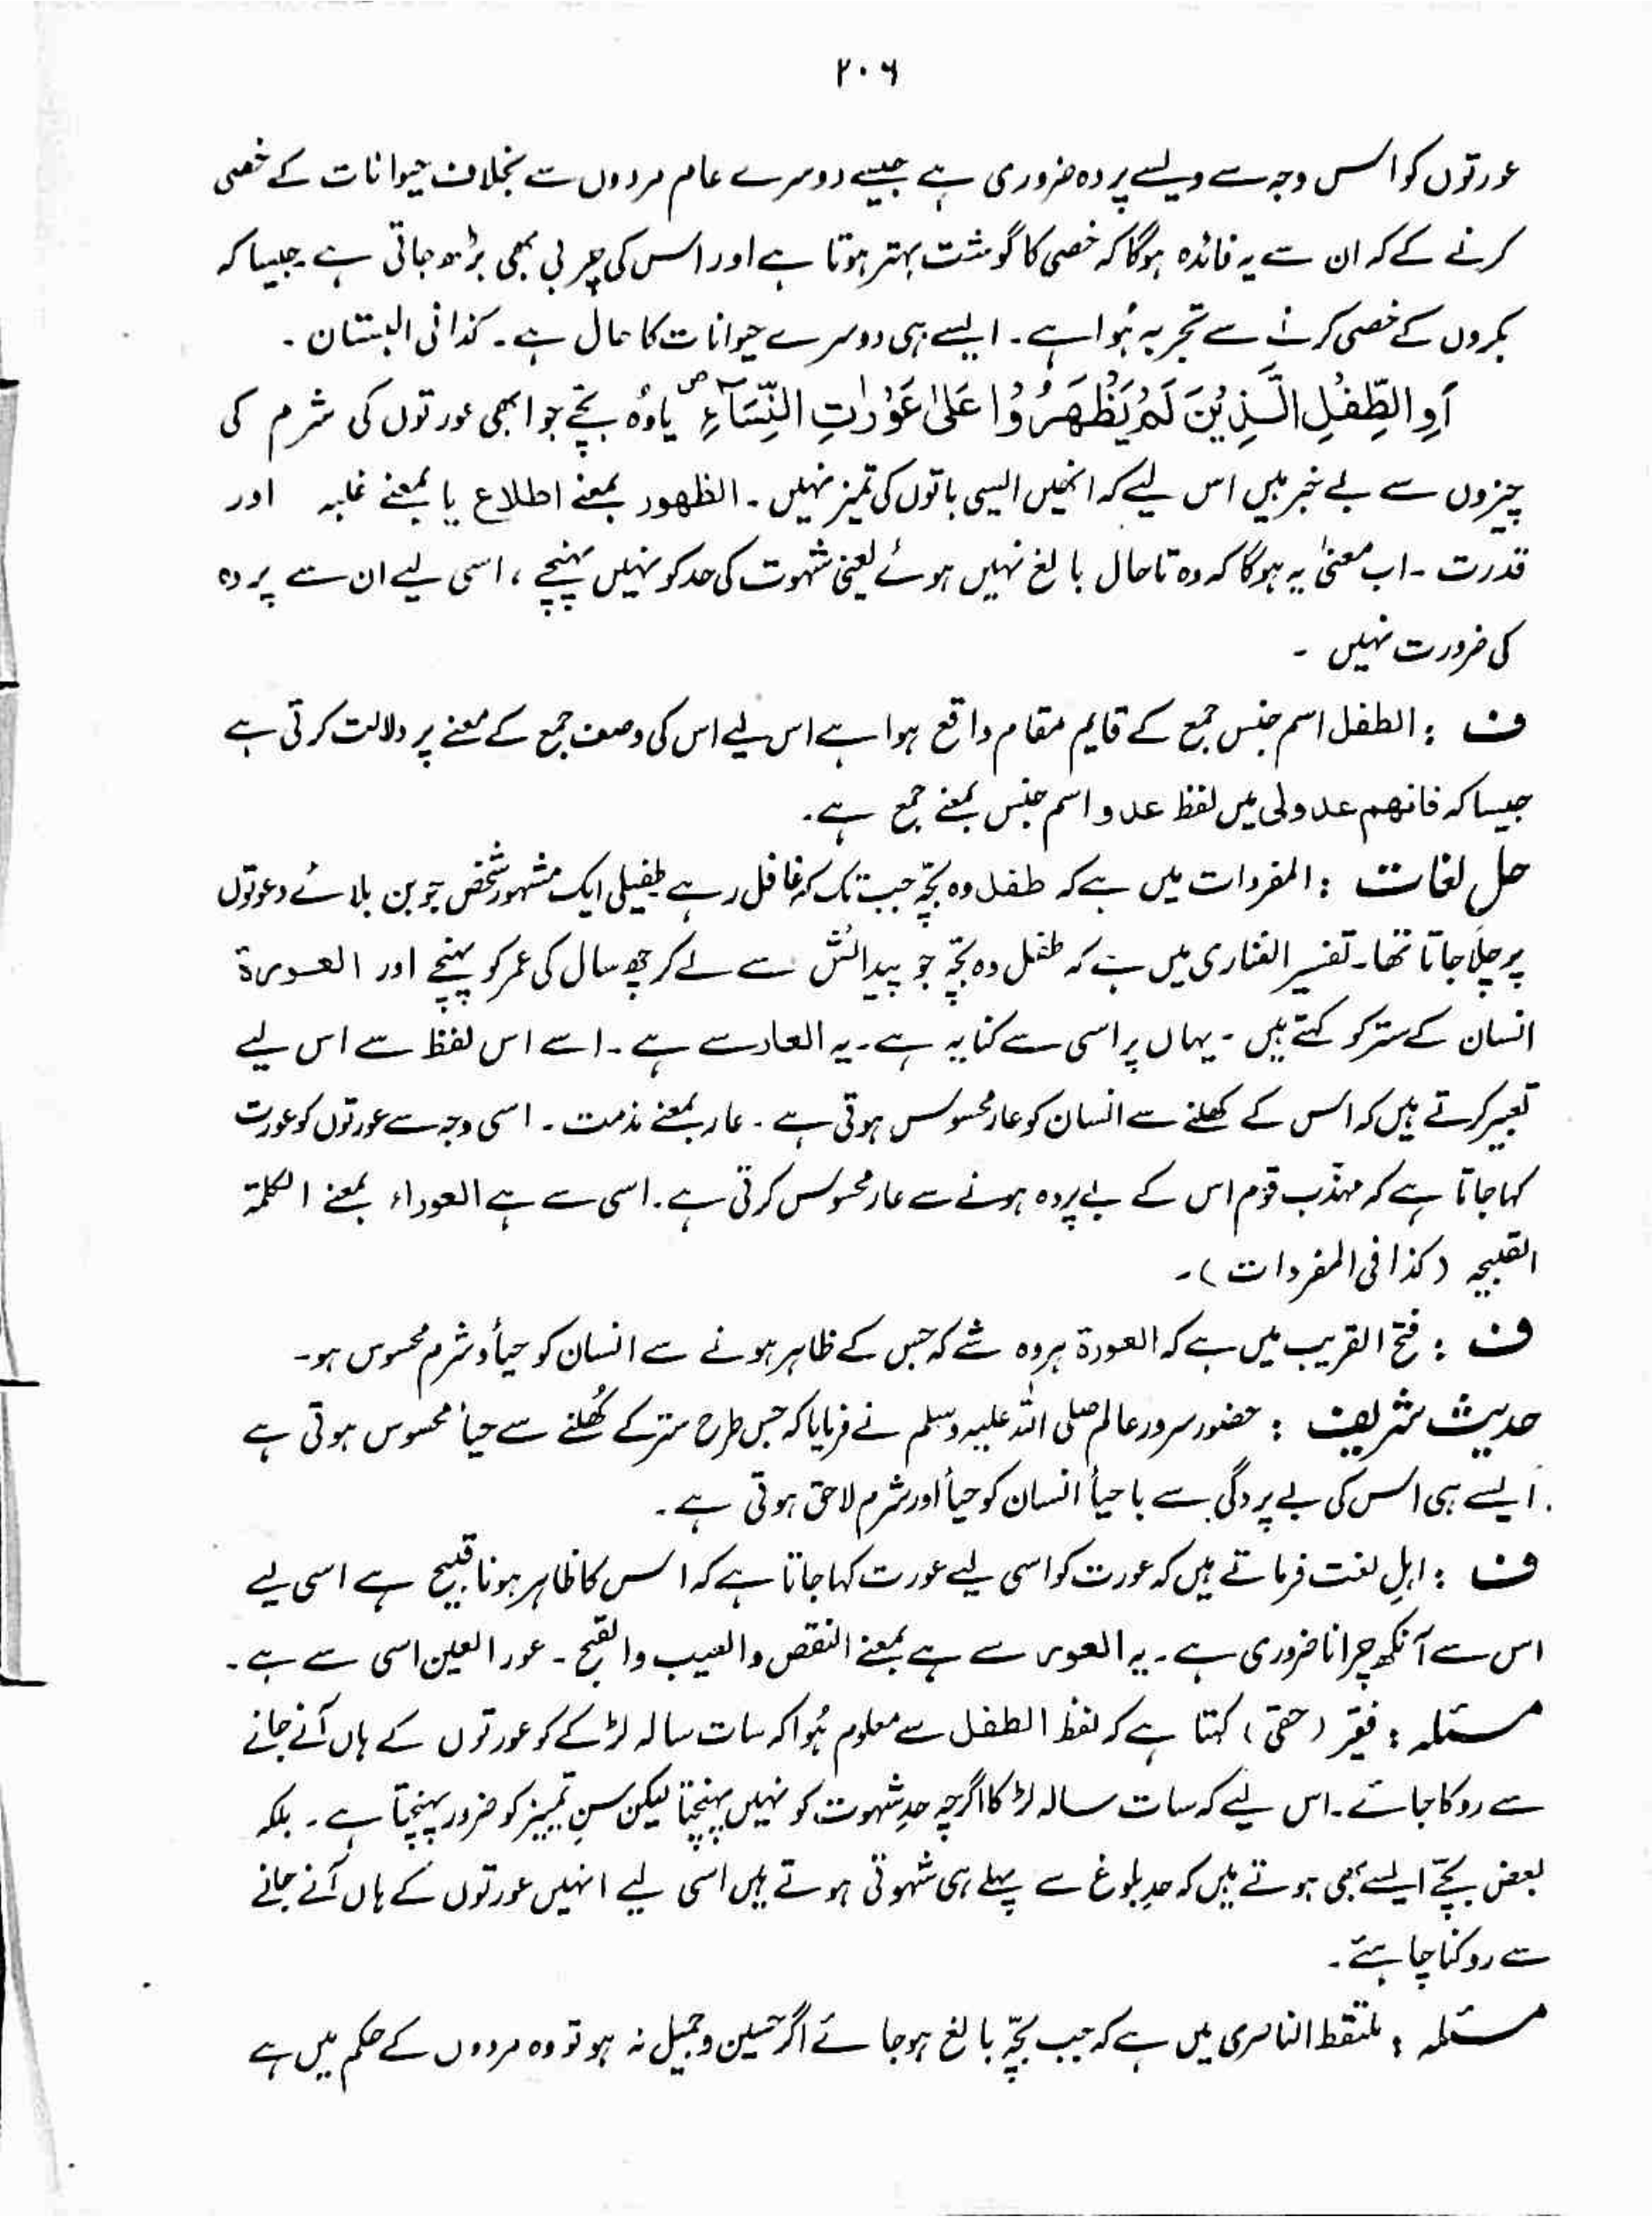 ۲۰۶
عورتوں کو اس وجہ سے ویسے پردہ ضروری ہے جیسے دوسرے عام مردوں سے بخلاف حیوانات کے خصی
کرنے کے کہ ان سے یہ فائدہ ہوگا کہ خصی کا گوشت بہتر ہوتا ہے اور اس کی چربی بھی بڑھ جاتی ہے۔ جیسا کہ
بکروں کے خصی کرنے سے تجربہ ہُوا ہے۔ ایسے ہی دوسرے حیوانات کا حال ہے۔ کذا فی البستان۔
اَوِ الطِّفْلِ الَّذِیْنَ لَمْ یَظْهَرُوْا عَلٰی عَوْرٰتِ النِّسَآءِ ص یا وُہ بچّے جو ابھی عورتوں کی شرم کی
چیزوں سے بے خبر ہیں اس لیے کہ انھیں ایسی باتوں کی تمیز نہیں۔ الظہور بمعنے اطلاع یا بمعنے غلبہ اور
قدرت۔ اب معنیٰ یہ ہوگا کہ وہ تاحال بالغ نہیں ہوئے یعنی شہوت کی حد کو نہیں پہنچے، اسی لیے ان سے پردہ
کی ضرورت نہیں۔
ف : الطفل اسم جنس جمع کے قایم مقام واقع ہوا ہے اس لیے اس کی وصف جمع کے معنے پر دلالت کرتی ہے
جیسا کہ فانھم عدولی میں لفظ عدو اسم جنس بمعنے جمع ہے۔
حل لغات : المفردات میں ہے کہ طفل وہ بچّہ جب تک کہ غافل رہے طفیلی ایک مشہور شخص جو بن بلائے دعوتوں
پر چلا جاتا تھا۔ تفسیر الفناری میں ہے کہ طفل وہ بچّہ جو پیدائش سے لے کر چھ سال کی عمر کو پہنچے اور العورۃ
انسان کے ستر کو کہتے ہیں۔ یہاں پر اسی سے کنایہ ہے۔ یہ العار سے ہے۔ اسے اس لفظ سے اس لیے
تعبیر کرتے ہیں کہ اس کے کھلنے سے انسان کو عار محسوس ہوتی ہے۔ عار بمعنے مذمت۔ اسی وجہ سے عورتوں کو عورت
کہا جاتا ہے کہ مہذّب قوم اس کے بے پردہ ہونے سے عار محسوس کرتی ہے۔ اسی سے ہے العوراء بمعنے الکلمۃ
القبیحہ (کذا فی المفردات)۔
ف : فتح القریب میں ہے کہ العورۃ ہر وہ شے کہ جس کے ظاہر ہونے سے انسان کو حیأ و شرم محسوس ہو۔
حدیث شریف : حضور سرور عالم صلی اللہ علیہ وسلم نے فرمایا کہ جس طرح ستر کے کُھلنے سے حیأ محسوس ہوتی ہے
ایسے ہی اس کی بے پردگی سے باحیأ انسان کو حیأ اور شرم لاحق ہوتی ہے۔
ف : اہلِ لغت فرماتے ہیں کہ عورت کو اسی لیے عورت کہا جاتا ہے کہ اس کا ظاہر ہونا قبیح ہے اسی لیے
اس سے آنکھ چرانا ضروری ہے۔ یہ العور سے ہے بمعنے النقص والعیب والقبح۔ عور العین اسی سے ہے۔
مسئلہ : فقیر (حقی) کہتا ہے کہ لفظ الطفل سے معلوم ہُوا کہ سات سالہ لڑکے کو عورتوں کے ہاں آنے جانے
سے روکا جائے۔ اس لیے کہ سات سالہ لڑکا اگرچہ حدِ شہوت کو نہیں پہنچتا لیکن سنِ تمییز کو ضرور پہنچتا ہے۔ بلکہ
بعض بچّے ایسے بھی ہوتے ہیں کہ حدِ بلوغ سے پہلے ہی شہوتی ہوتے ہیں اسی لیے انہیں عورتوں کے ہاں آنے جانے
سے روکنا چاہئے۔
مسئلہ : ملتقط الناصری میں ہے کہ جب بچّہ بالغ ہوجائے اگر حسین و جمیل نہ ہو تو وہ مردوں کے حکم میں ہے